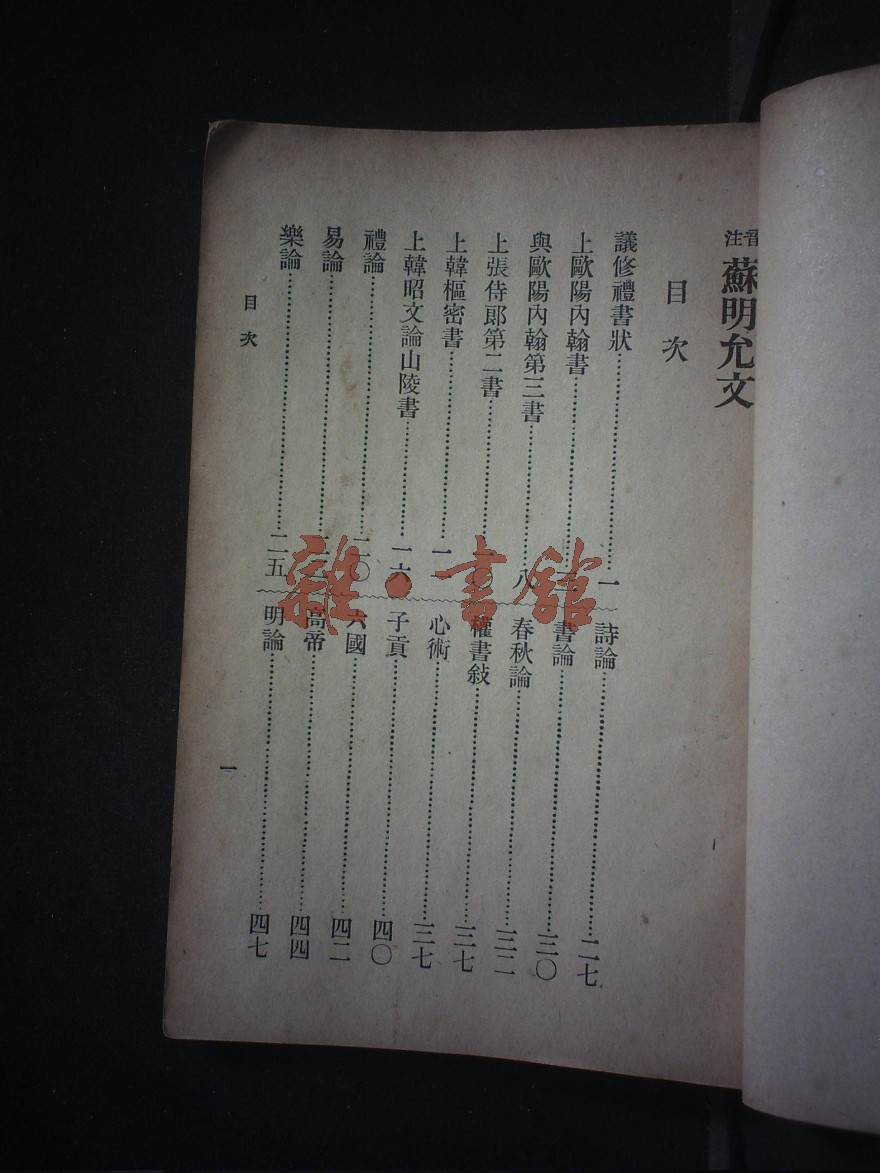 音注 蘇明允文
目次
議修禮書狀……一
上歐陽內翰書……
與歐陽內翰第三書……八
上張侍郎第二書……
上韓樞密書……
上韓昭文論山陵書……一六
禮論……二〇
易論……
樂論……二五
詩論……二七
書論……三〇
春秋論……三二
權書敍……三七
心術……三七
子貢……四〇
六國……四二
高帝……四四
明論……四七
目次
一
雜·書館